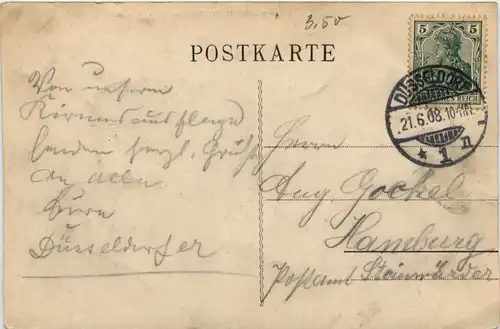 3,50
POSTKARTE
5 5
DÜSSELDORF
21.6.08.10-11
* 1 n
Von unserm
Kirmesausfluge
senden herzl. Grüße
an alle
Eure
Düsseldorfer
Herrn
Aug Gockel
Hamburg
Postamt Steinwärder